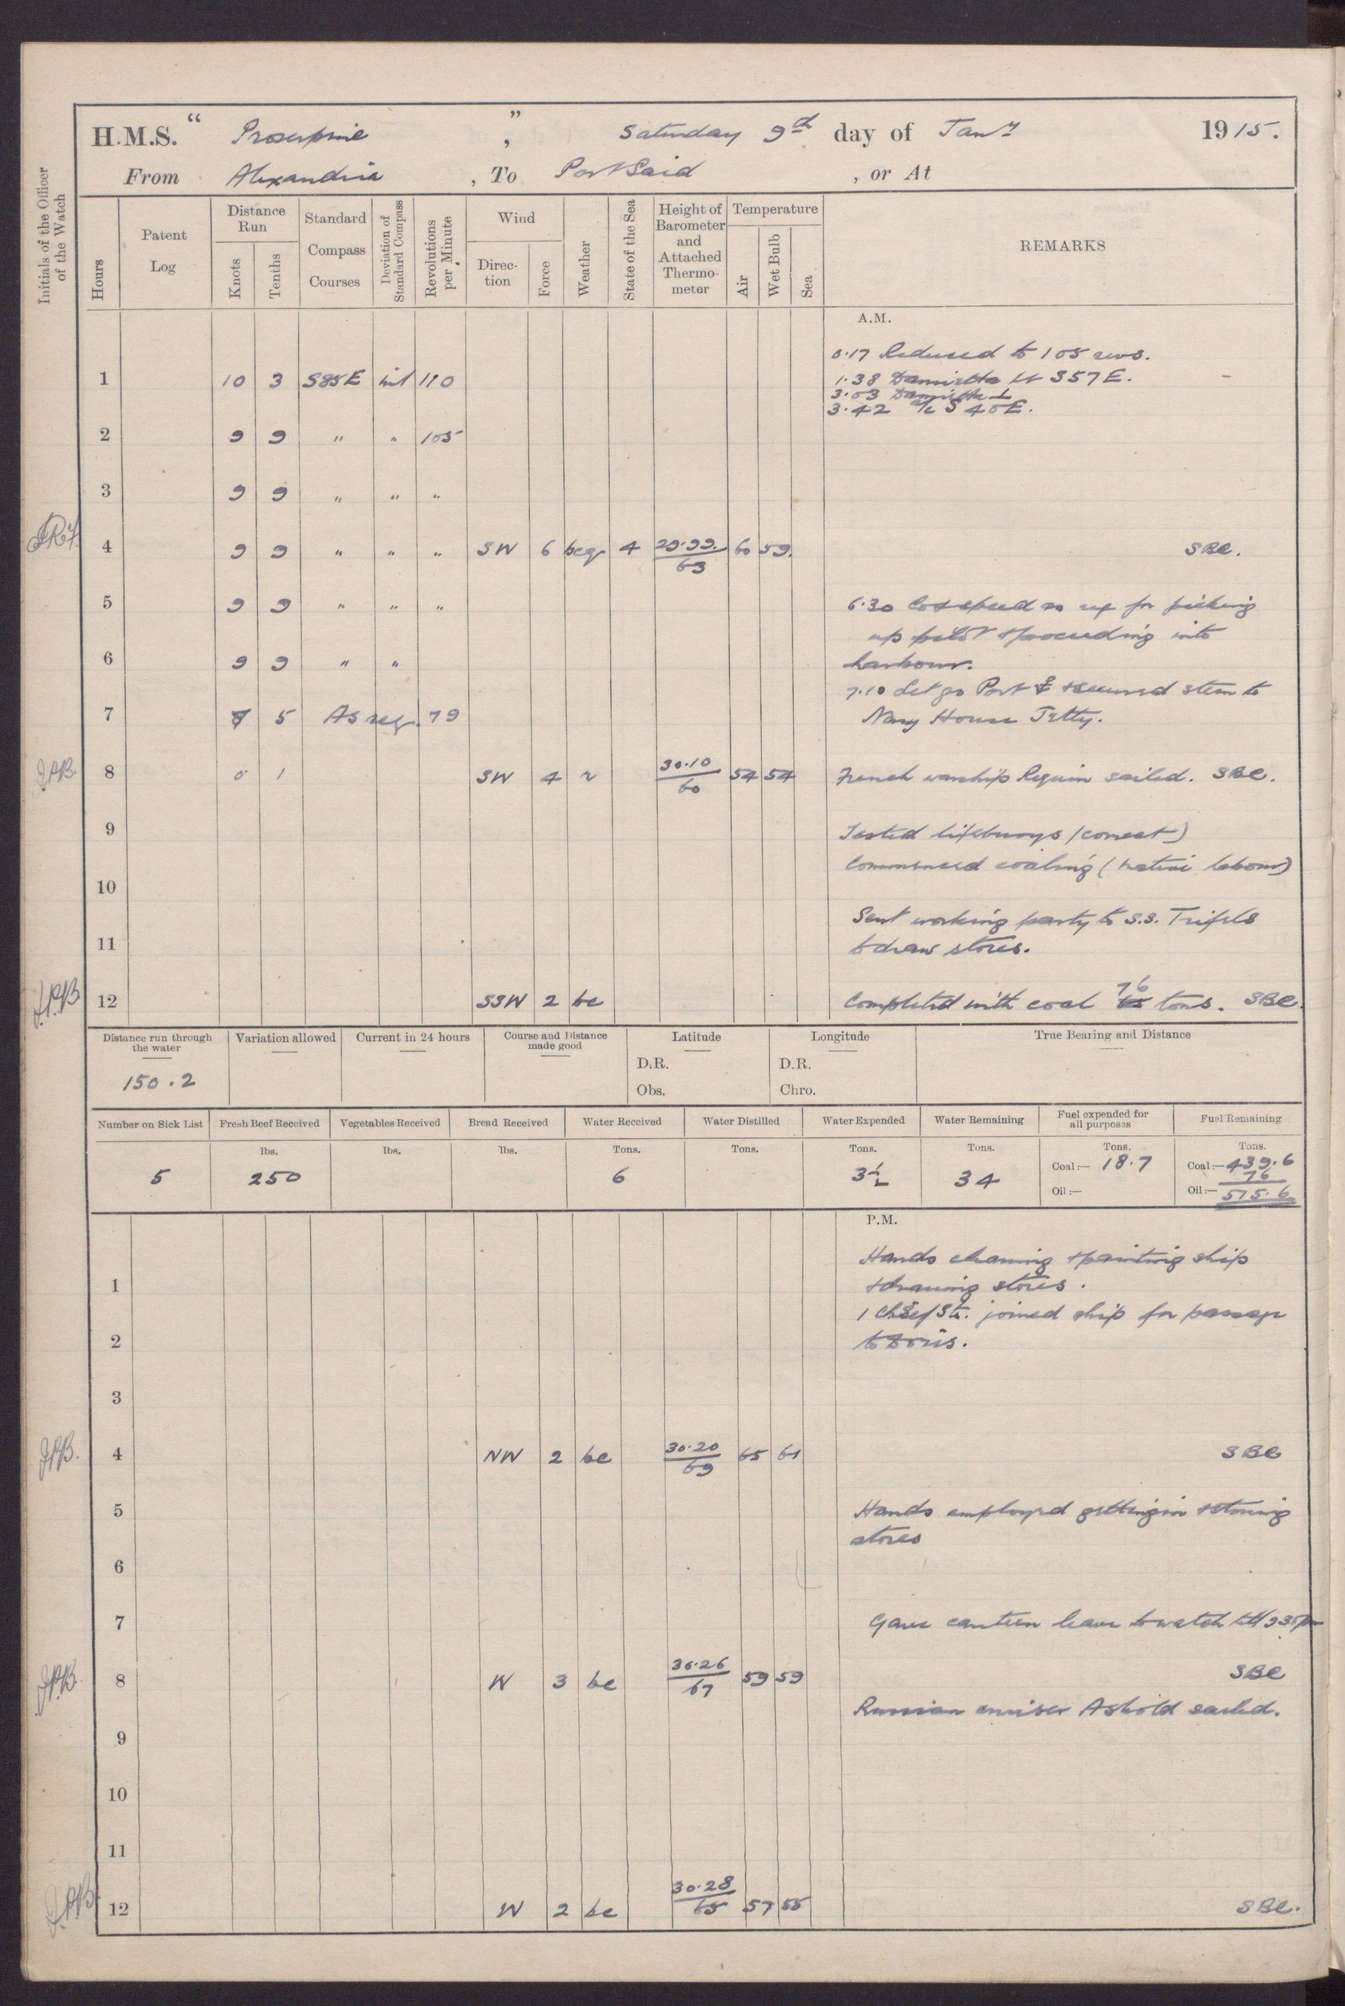 H.M.S. “ Proserpine ”, Saturday 9th day of Jany 1915.
From Alexandria, To Port Said, or At
Initials of the Officer of the Watch
Hours
Patent Log
Distance Run
Knots
Tenths
Standard Compass Courses
Deviation of Standard Compass
Revolutions per Minute
Wind
Direction
Force
Weather
State of the Sea
Height of Barometer and Attached Thermometer
Temperature
Air
Wet Bulb
Sea
REMARKS
A.M.
0.17 Reduced to 105 revs.
1 10 3 S85E nil 110
1.38 Damietta Lt S57E.
3.03 Damietta ⊥
3.42 a/c S 40E.
2 9 9 " " 105
3 9 9 " " "
4 9 9 " " " SW 6 bcq 4 29.99/63 60 59. SBC.
5 9 9 " " "
6.30 Co & speed as req for picking
up pilot & proceeding into
6 9 9 " "
harbour.
7.10 Let go Port ⚓ & secured stern to
7 5 As req. 79
Navy House Jetty.
8 0 1 SW 4 r 30.10/60 54 54 French warship Requin sailed. SBC.
9 Tested lifebuoys (correct)
Commenced coaling (native labour)
10
Sent working party to S.S. Trifels
11 to draw stores.
12 SSW 2 bc Completed with coal 76 tons. SBC.
Distance run through the water
150.2
Variation allowed
Current in 24 hours
Course and Distance made good
Latitude
D.R.
Obs.
Longitude
D.R.
Chro.
True Bearing and Distance
Number on Sick List
5
Fresh Beef Received
lbs.
250
Vegetables Received
lbs.
Bread Received
lbs.
Water Received
Tons.
6
Water Distilled
Tons.
Water Expended
Tons.
3½
Water Remaining
Tons.
34
Fuel expended for all purposes
Tons.
Coal:— 18.7
Oil:—
Fuel Remaining
Tons.
Coal:— 439.6
76
Oil:— 515.6
P.M.
Hands cleaning & painting ship
1 & drawing stores.
1 Chief Sto. joined ship for passage
2
3
4 NW 2 bc 30.20/69 65 61 SBC
5 Hands employed getting in & stowing
stores
6
7 Gave canteen leave to watch till 9.30pm
8 W 3 bc 30.26/67 59 59 SBC
Russian cruiser Askold sailed.
9
10
11
12 W 2 bc 30.28/65 57 55 SBC.
JPB
JPB
JPB.
JPB
JPB